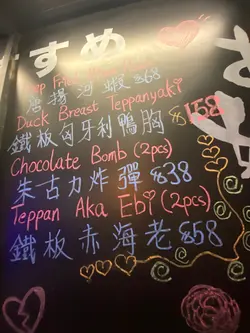 すすめ
Deep Fried
唐揚河蝦 $68
Duck Breast Teppanyaki
鐵板匈牙利鴨胸 $158
Chocolate Bomb (2pcs)
朱古力炸彈 $38
Teppan Aka Ebi (2pcs)
鐵板赤海老 $58